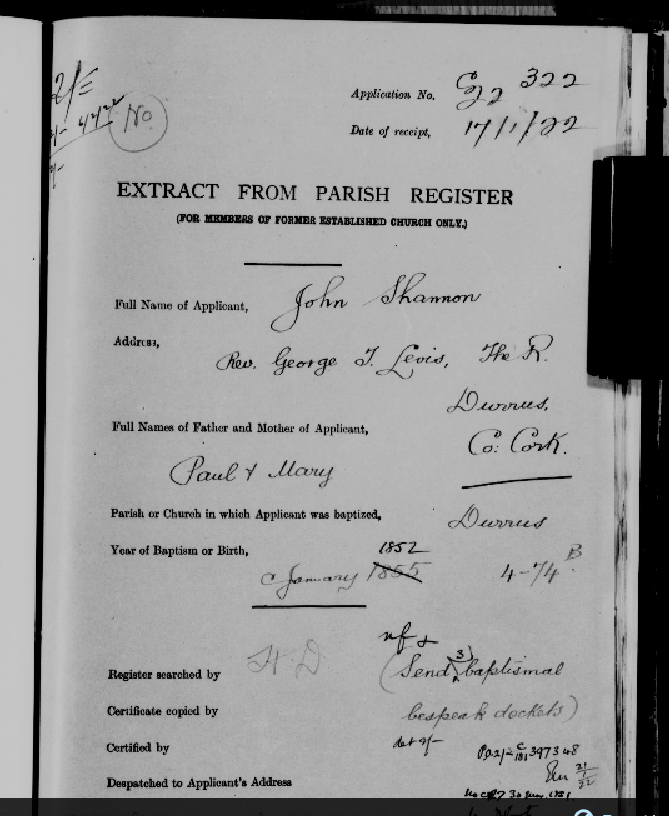 Application No. C 22 322
No.
Date of receipt, 17/1/22
EXTRACT FROM PARISH REGISTER
(FOR MEMBERS OF FORMER ESTABLISHED CHURCH ONLY.)
Full Name of Applicant, John Shannon
Address,
Rev. George T. Levis, The R.
Durrus,
Full Names of Father and Mother of Applicant,
Co: Cork.
Paul & Mary
Parish or Church in which Applicant was baptized, Durrus
Year of Baptism or Birth, 1852
c January 1855 4-74 B
nf &
Register searched by H D (Send 3) baptismal
Certificate copied by bespeak dockets)
Certified by
Despatched to Applicant's Address